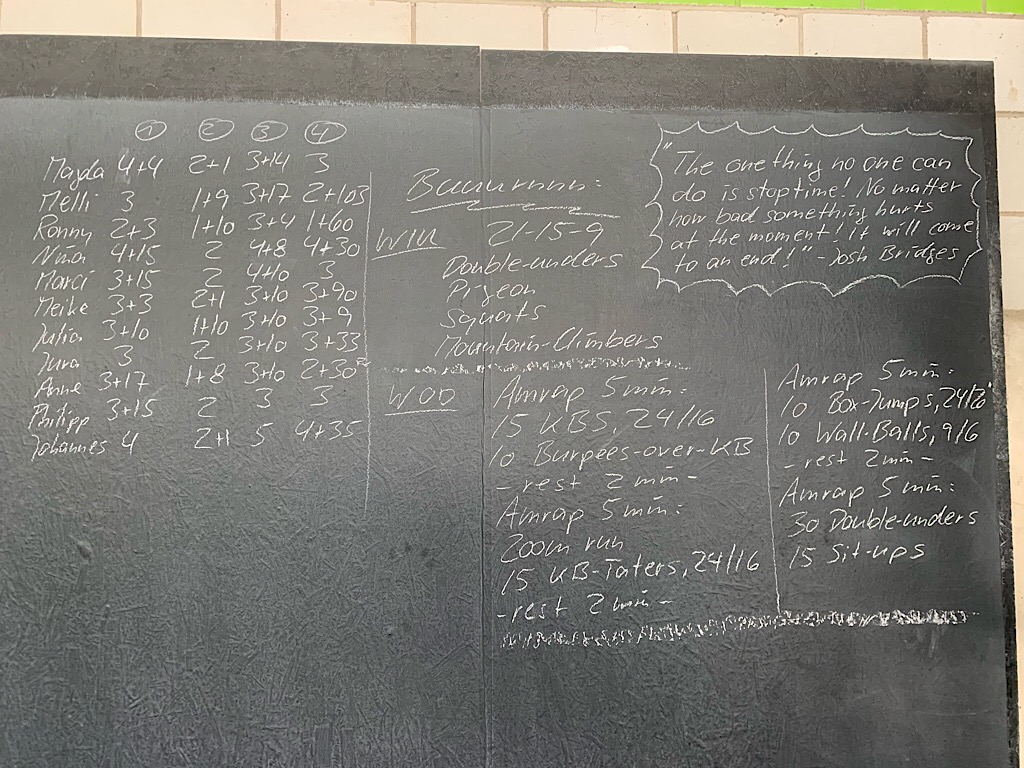 ① ② ③ ④
Magda 4+4 2+1 3+14 3
Melli 3 1+9 3+17 2+103
Ronny 2+3 1+10 3+4 1+60
Nina 4+15 2 4+8 4+30
Marci 3+15 2 4+10 3
Meike 3+3 2+1 3+10 3+90
Julia 3+10 1+10 3+10 3+9
Jura 3 2 3+10 3+33
Anne 3+17 1+8 3+10 2+30
Philipp 3+15 2 3 3
Johannes 4 2+1 5 4+35
WU
21-15-9
Double-unders
Pigeon
Squats
Mountain-Climbers
"The one thing no one can
do is stop time! No matter
how bad something hurts
at the moment! it will come
to an end!" - Josh Bridges
WOD
Amrap 5 min:
15 KBS, 24/16
10 Burpees-over-KB
- rest 2 min -
Amrap 5 min:
200m run
15 KB-Taters, 24/16
- rest 2 min -
Amrap 5 min:
10 Box-Jumps, 24/20"
10 Wall-Balls, 9/6
- rest 2 min -
Amrap 5 min:
30 Double-unders
15 Sit-ups